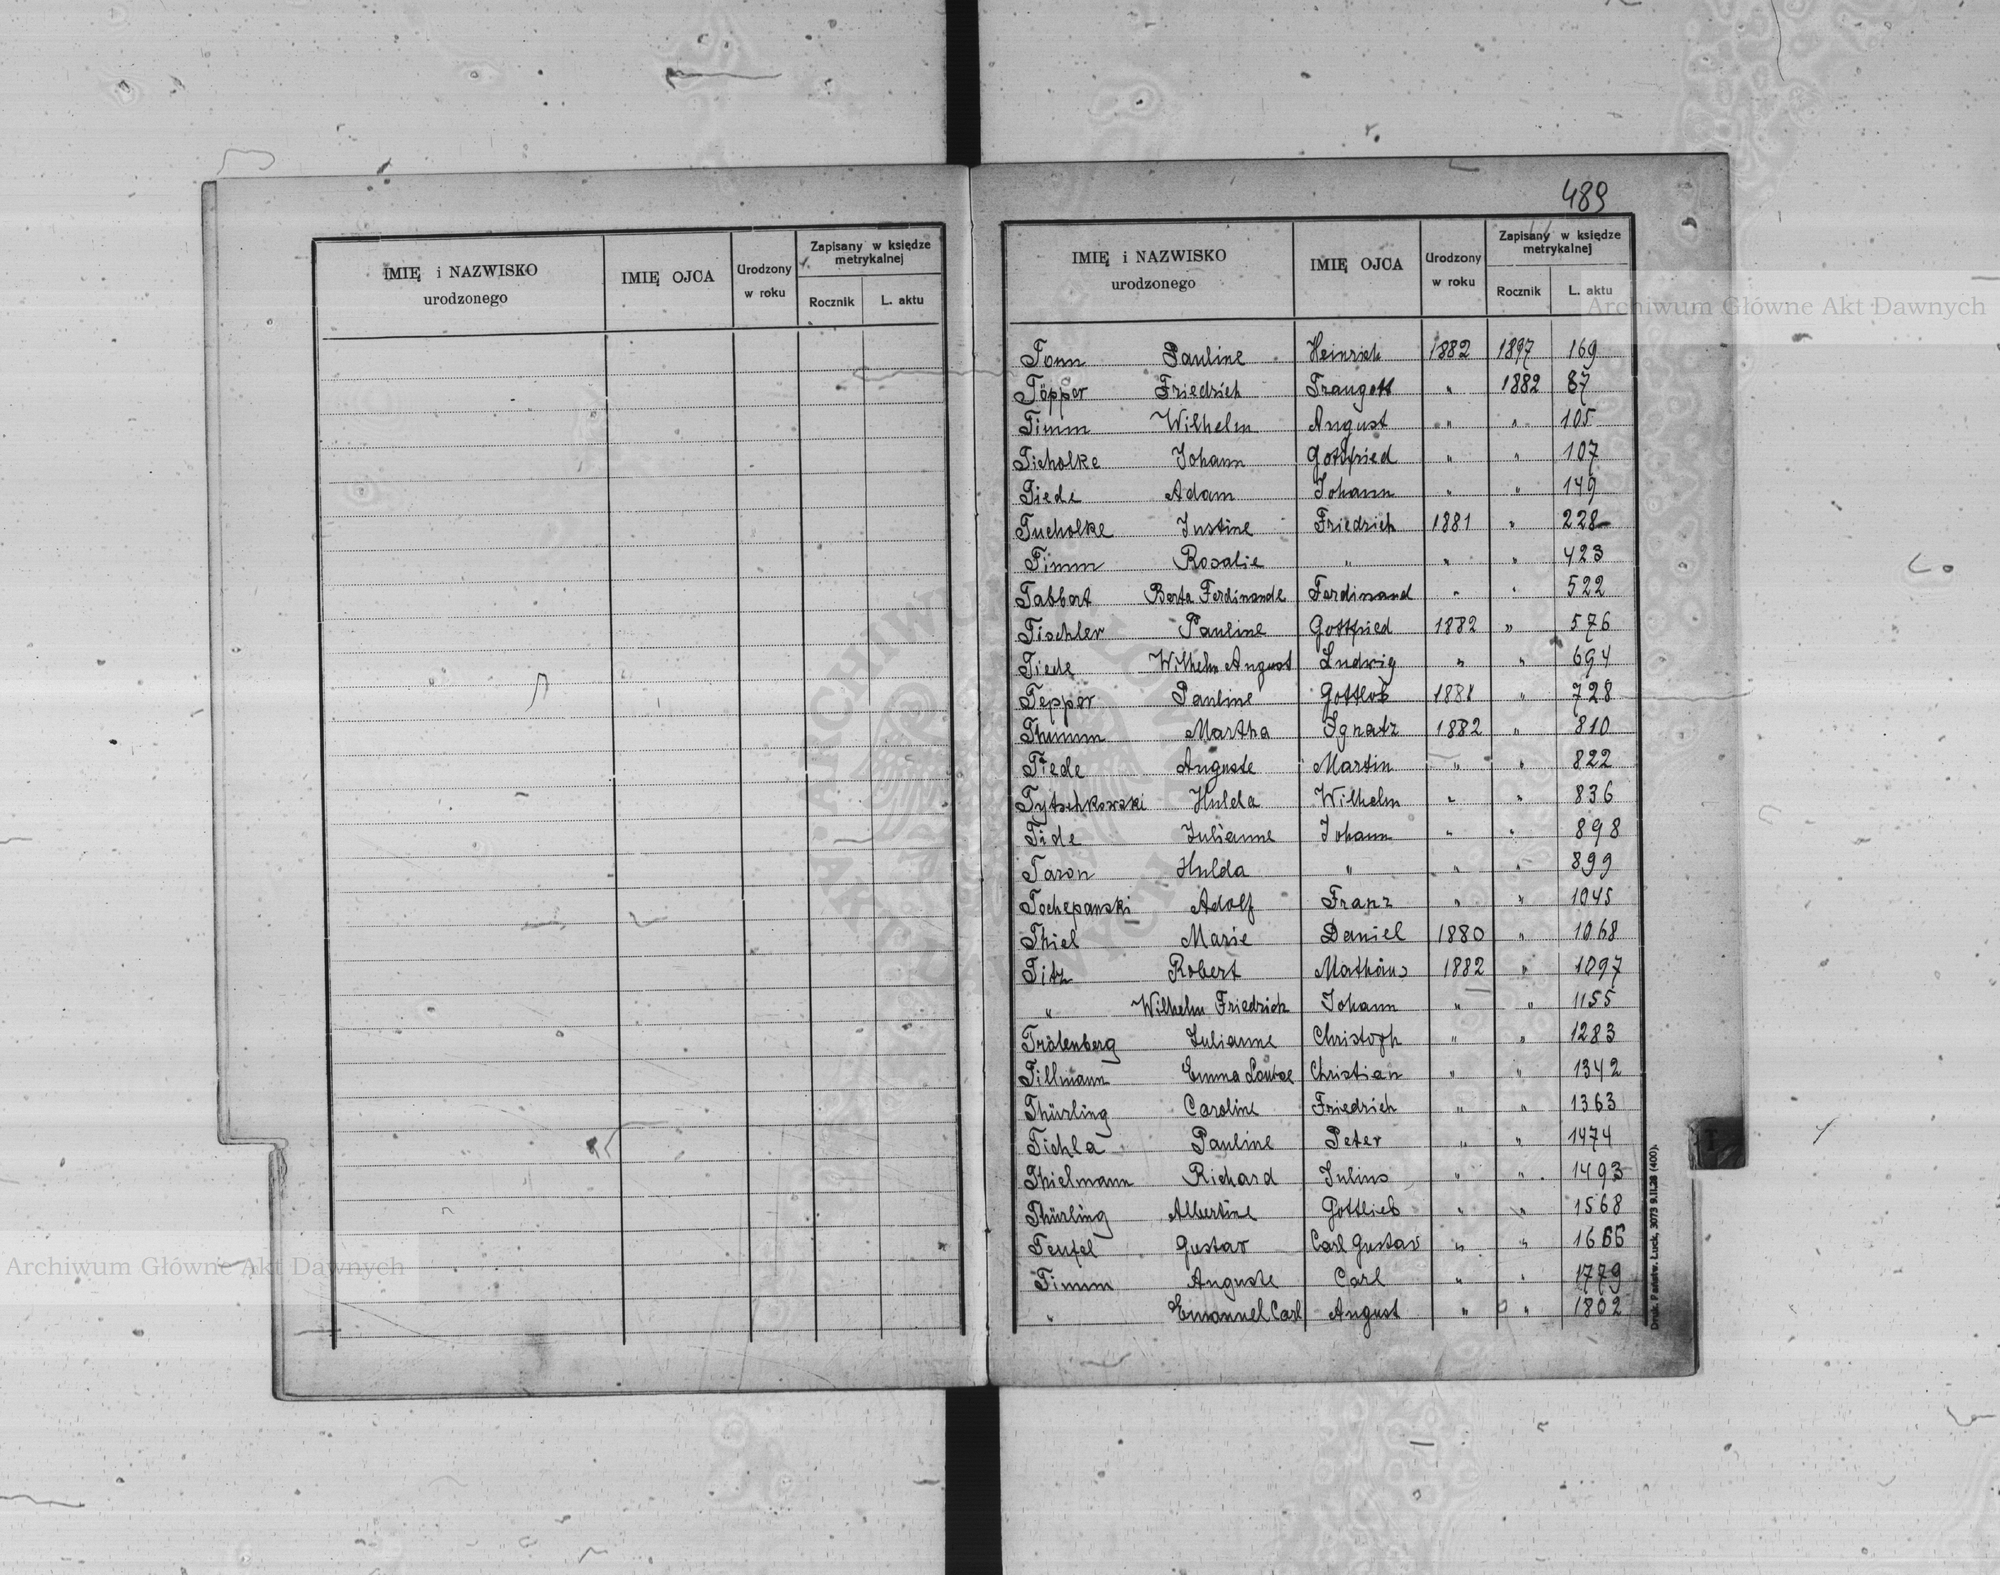 489
IMIĘ i NAZWISKO urodzonego IMIĘ OJCA Urodzony w roku Zapisany w księdze metrykalnej Rocznik L. aktu
IMIĘ i NAZWISKO urodzonego IMIĘ OJCA Urodzony w roku Zapisany w księdze metrykalnej Rocznik L. aktu
Archiwum Główne Akt Dawnych
Tonn Pauline Heinrich 1882 1897 169
Töpper Friedrich Traugott " 1882 87
Timm Wilhelm August " " 105
Ticholke Johann Gottfried " " 107
Tiede Adam Johann " " 149
Tucholke Justine Friedrich 1881 " 228
Timm Rosalie " " " 423
Tabbert Berta Ferdinande Ferdinand " " 522
Tischler Pauline Gottfried 1882 " 576
Tiede Wilhelm August Ludwig " " 694
Tepper Pauline Gottlob 1881 " 728
Thumm Martha Ignatz 1882 " 810
Tiede Auguste Martin " " 822
Tytschkowski Hulda Wilhelm " " 836
Tide Julianne Johann " " 898
Taron Hulda " " " 899
Tochepanski Adolf Franz " " 1045
Thiel Marie Daniel 1880 " 1068
Titz Robert Mathäus 1882 " 1097
" Wilhelm Friedrich Johann " " 1155
Trölenberg Julianne Christoph " " 1283
Tillmann Emma Louise Christian " " 1342
Thürling Caroline Friedrich " " 1363
Tichla Pauline Peter " " 1474
Thielmann Richard Julius " " 1493
Thürling Albertine Gottlieb " " 1568
Teufel Gustav Carl Gustav " " 1666
Timm Auguste Carl " " 1779
" Emanuel Carl August " " 1802
Druk. Państw. Łuck, 3073 9.II.28 (400).
T
Archiwum Główne Akt Dawnych